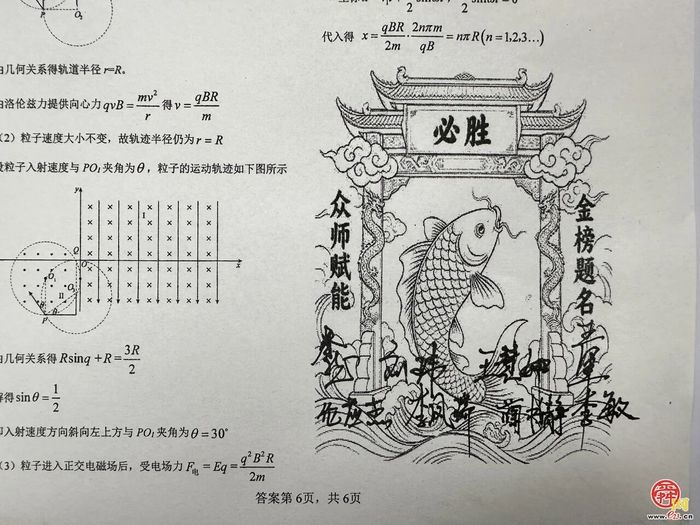 P O₂
代入得 x = qBR/2m · 2nπm/qB = nπR(n=1,2,3…)
由几何关系得轨道半径 r=R。
由洛伦兹力提供向心力 qvB = mv²/r 得 v = qBR/m
（2）粒子速度大小不变，故轨迹半径仍为 r = R
设粒子入射速度与 PO₁ 夹角为 θ，粒子的运动轨迹如下图所示
y
I
Q
O
x
O₁
II
P
由几何关系得 Rsinq + R = 3R/2
解得 sinθ = 1/2
即入射速度方向斜向左上方与 PO₁ 夹角为 θ = 30°
（3）粒子进入正交电磁场后，受电场力 F电 = Eq = q²B²R/2m
必胜
众师赋能
金榜题名
李敏
答案第 6页，共 6页